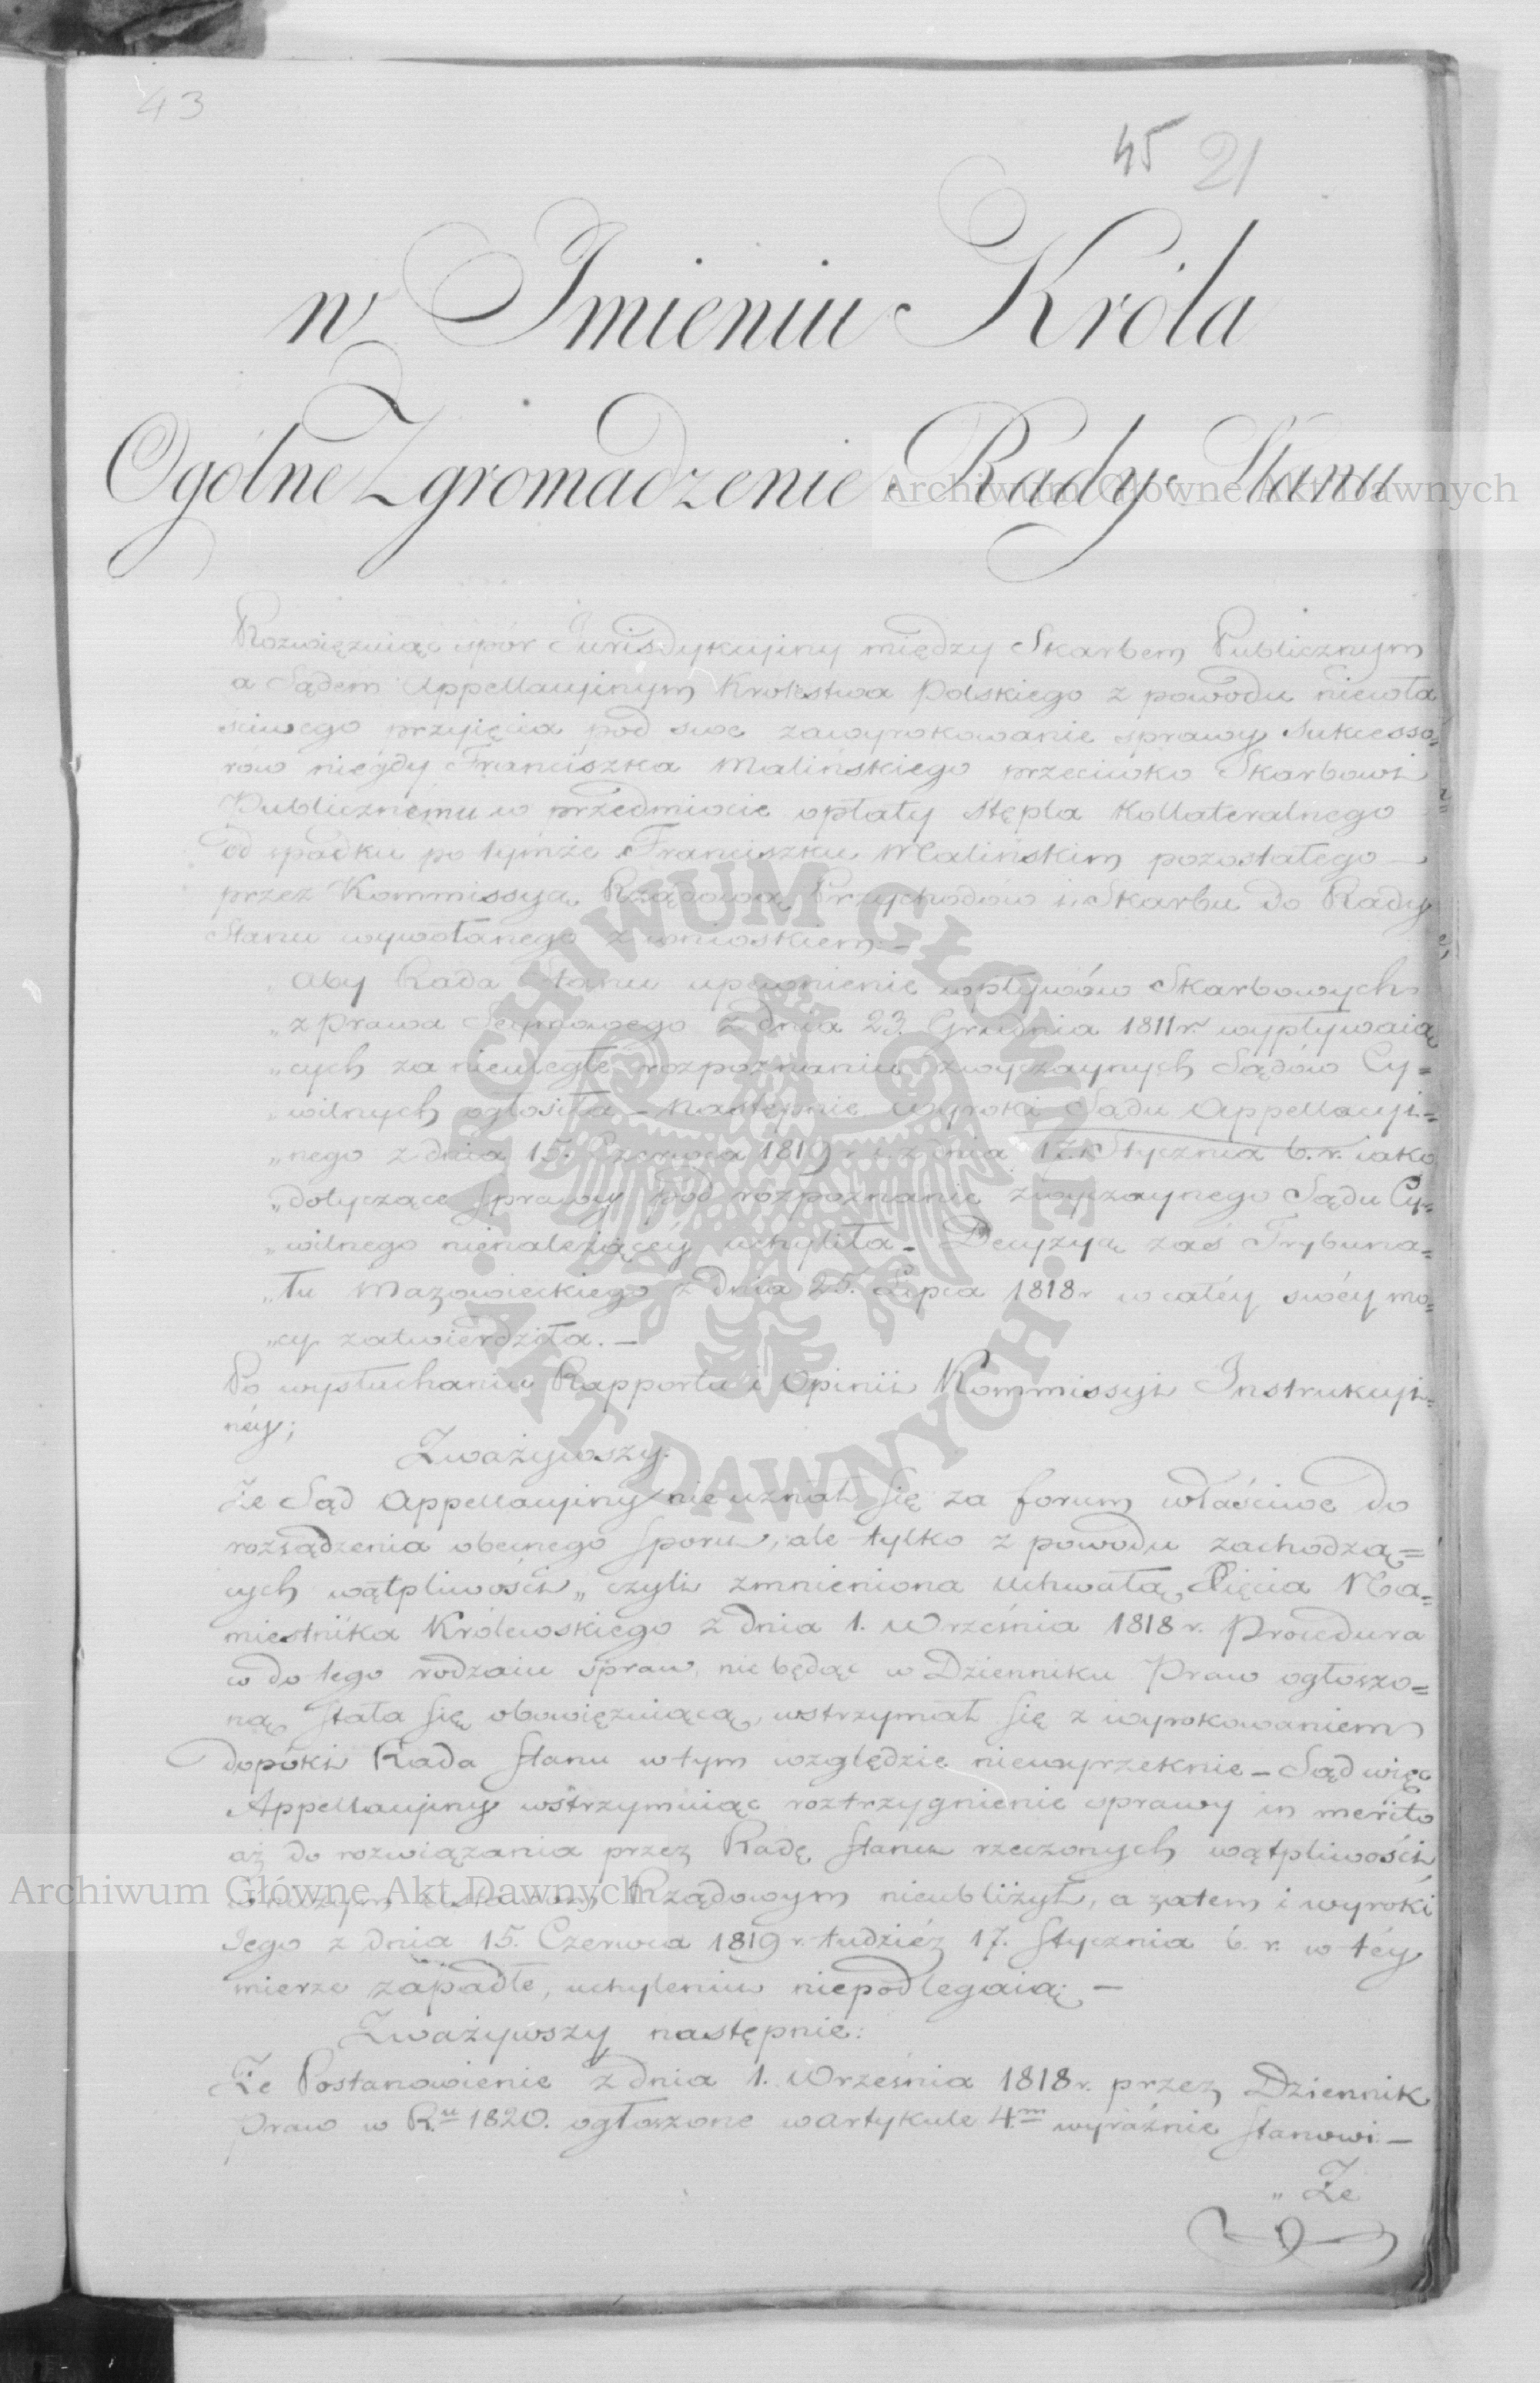 43
45 21
w Imieniu Króla
Ogólne Zgromadzenie Rady Stanu
Rozwięzuiąc spór Jurisdykcyiny między Skarbem Publicznym
a Sądem Appellacyinym Krolestwa Polskiego z powodu niewła
sciwego przyięcia pod swe zawyrokowanie sprawy Sukcesso=
rów niegdy Franciszka Malińskiego przeciwko Skarbowi
Publicznemu w przedmiocie opłaty stępla Kollateralnego
od spadku po tymże Franciszku Malińskim pozostałego —
przez Kommissyą Rządową Przychodów i Skarbu do Rady
Stanu wywołanego z wnioskiem —
„ Aby Rada Stanu upewnienie wpływów Skarbowych
„ z Prawa Seymowego z dnia 23 Grudnia 1811 r wypływaią
„ cych za nieuległe rozpoznaniu zwyczaynych Sądów Cy=
„ wilnych ogłosiła — następnie wyroki Sądu Appellacyi=
„ nego z dnia 15. Czerwca 1819 r. i z dnia 17. Stycznia b. r. iako
„ dotyczące sprawy pod rozpoznanie zwyczaynego Sądu Cy=
„ wilnego nienależącéy uchyliła — Decyzyą zaś Trybuna=
„ łu Mazowieckiego z dnia 25. Lipca 1818 r w całéy swéy mo=
„ cy zatwierdziła. —
Po wysłuchaniu Rapportu i Opinii Kommissyi Instrukcyi=
néy;
Zważywszy.
Że Sąd Appellacyiny nie uznał się za forum właściwe do
rozsądzenia obecnego sporu, ale tylko z powodu zachodzą=
cych wątpliwości „ czyli zmnieniona Uchwałą Xięcia Na=
miestnika Królewskiego z dnia 1. Września 1818 r. Procedura
co do tego rodzaiu spraw, nie będąc w Dzienniku Praw ogłoszo=
ną stała się obowięzuiącą, wstrzymał się z wyrokowaniem
dopóki Rada Stanu w tym względzie niewyrzeknie — Sąd więc
Appellacyiny wstrzymuiąc roztrzygnienie sprawy in merito
aż do rozwiązania przez Radę Stanu rzeczonych wątpliwości
w niczym Ustawom Rządowym nieubliżył, a zatem i wyroki
Jego z dnia 15. Czerwca 1819 r. tudzież 17. Stycznia b. r. w téy
mierze zapadłe, uchyleniu niepodlegaią; —
Zważywszy następnie:
Że Postanowienie z dnia 1. Września 1818 r. przez Dziennik
Praw w R.u 1820. ogłoszone w artykule 4.m wyraźnie stanowi —
„ Że
Archiwum Główne Akt Dawnych
Archiwum Główne Akt Dawnych
ARCHIWUM GŁÓWNE · AKT DAWNYCH ·